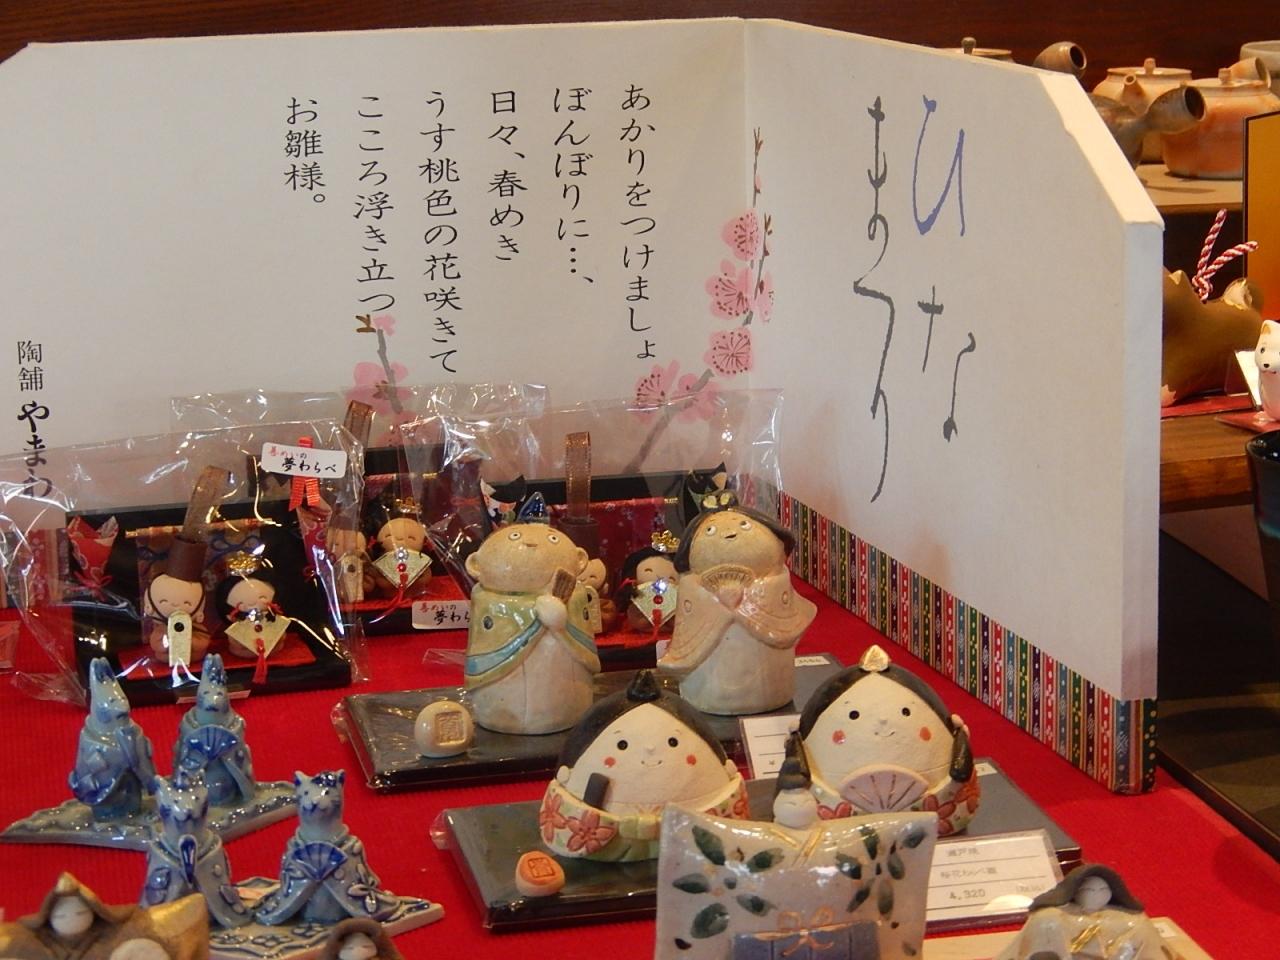 ひな
まつり
あかりをつけましょ
ぼんぼりに…、
日々、春めき
うす桃色の花咲きて
こころ浮き立つ
お雛様。
陶舗 やまわ
善めいの
夢わらべ
善めいの
夢わら
瀬戸焼
4,320